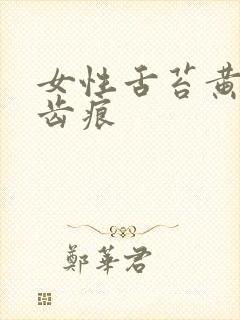 女性舌苔黄
齿痕
鄭華君